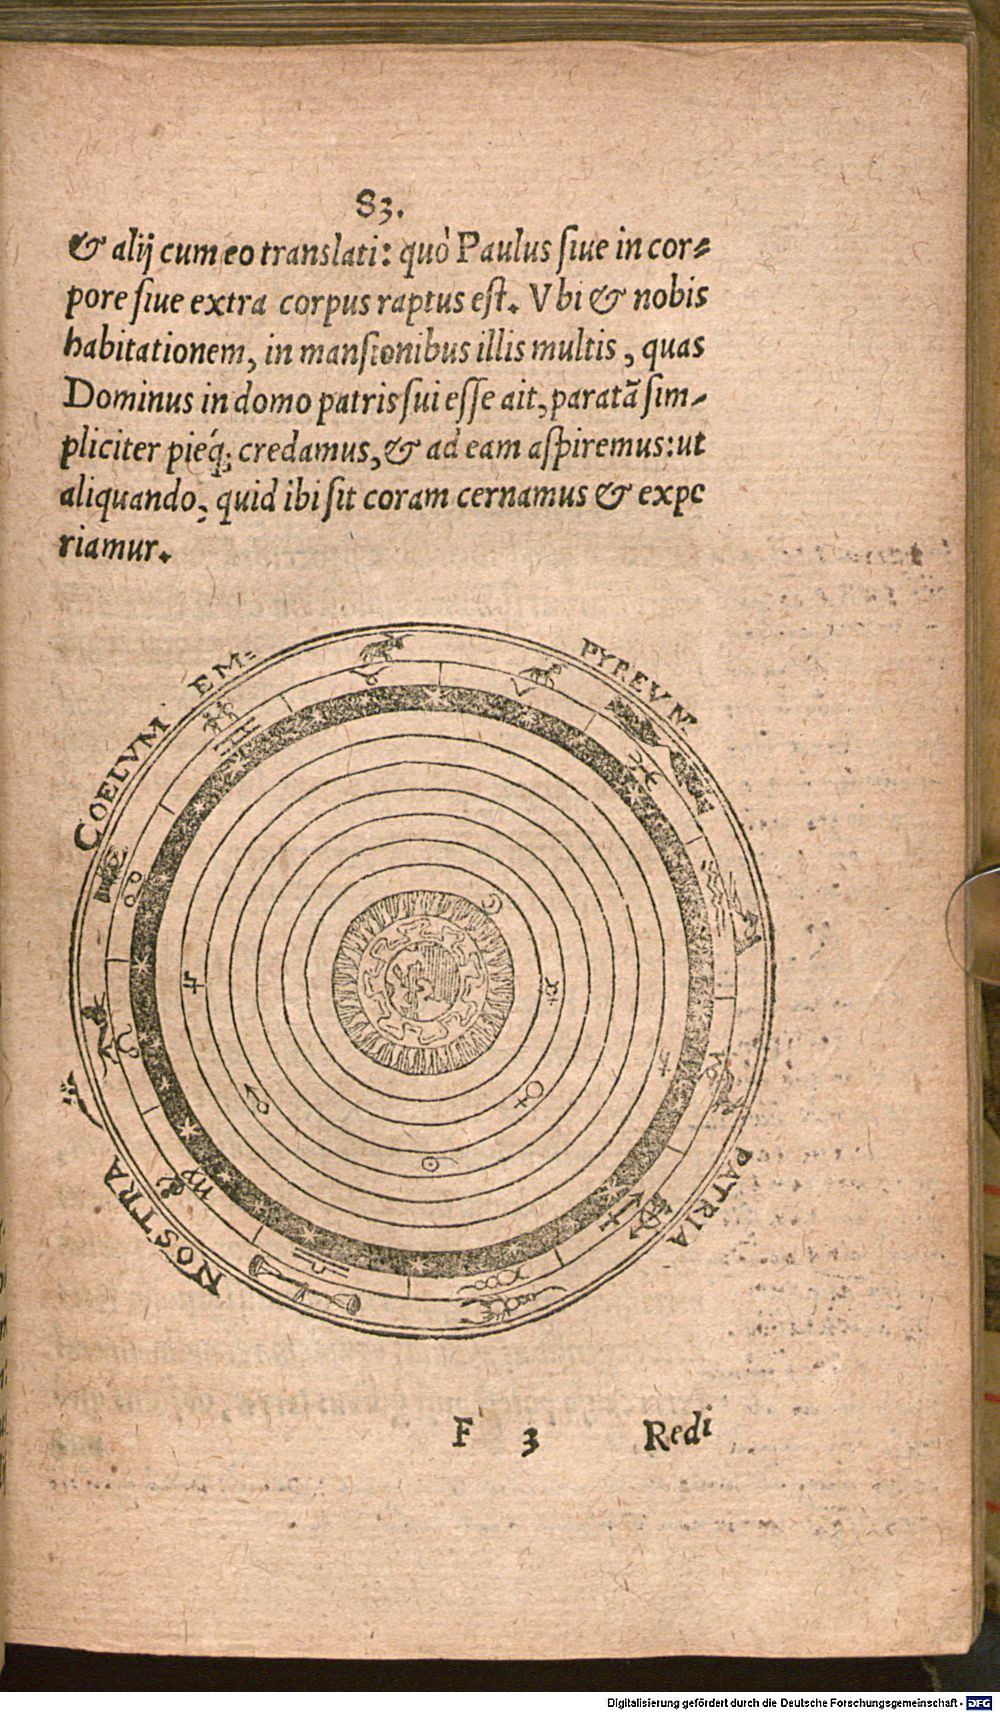 83.
& alij cum eo translati: quò Paulus ſiue in cor-
pore ſiue extra corpus raptus eſt. Vbi & nobis
habitationem, in manſionibus illis multis, quas
Dominus in domo patris ſui eſſe ait, paratã ſim-
pliciter pieq́; credamus, & ad eam aſpiremus: ut
aliquando, quid ibi ſit coram cernamus & expe
riamur.
COELVM EM=
PYREVM
NOSTRA
PATRIA
F 3 Redi
Digitalisierung gefördert durch die Deutsche Forschungsgemeinschaft - DFG